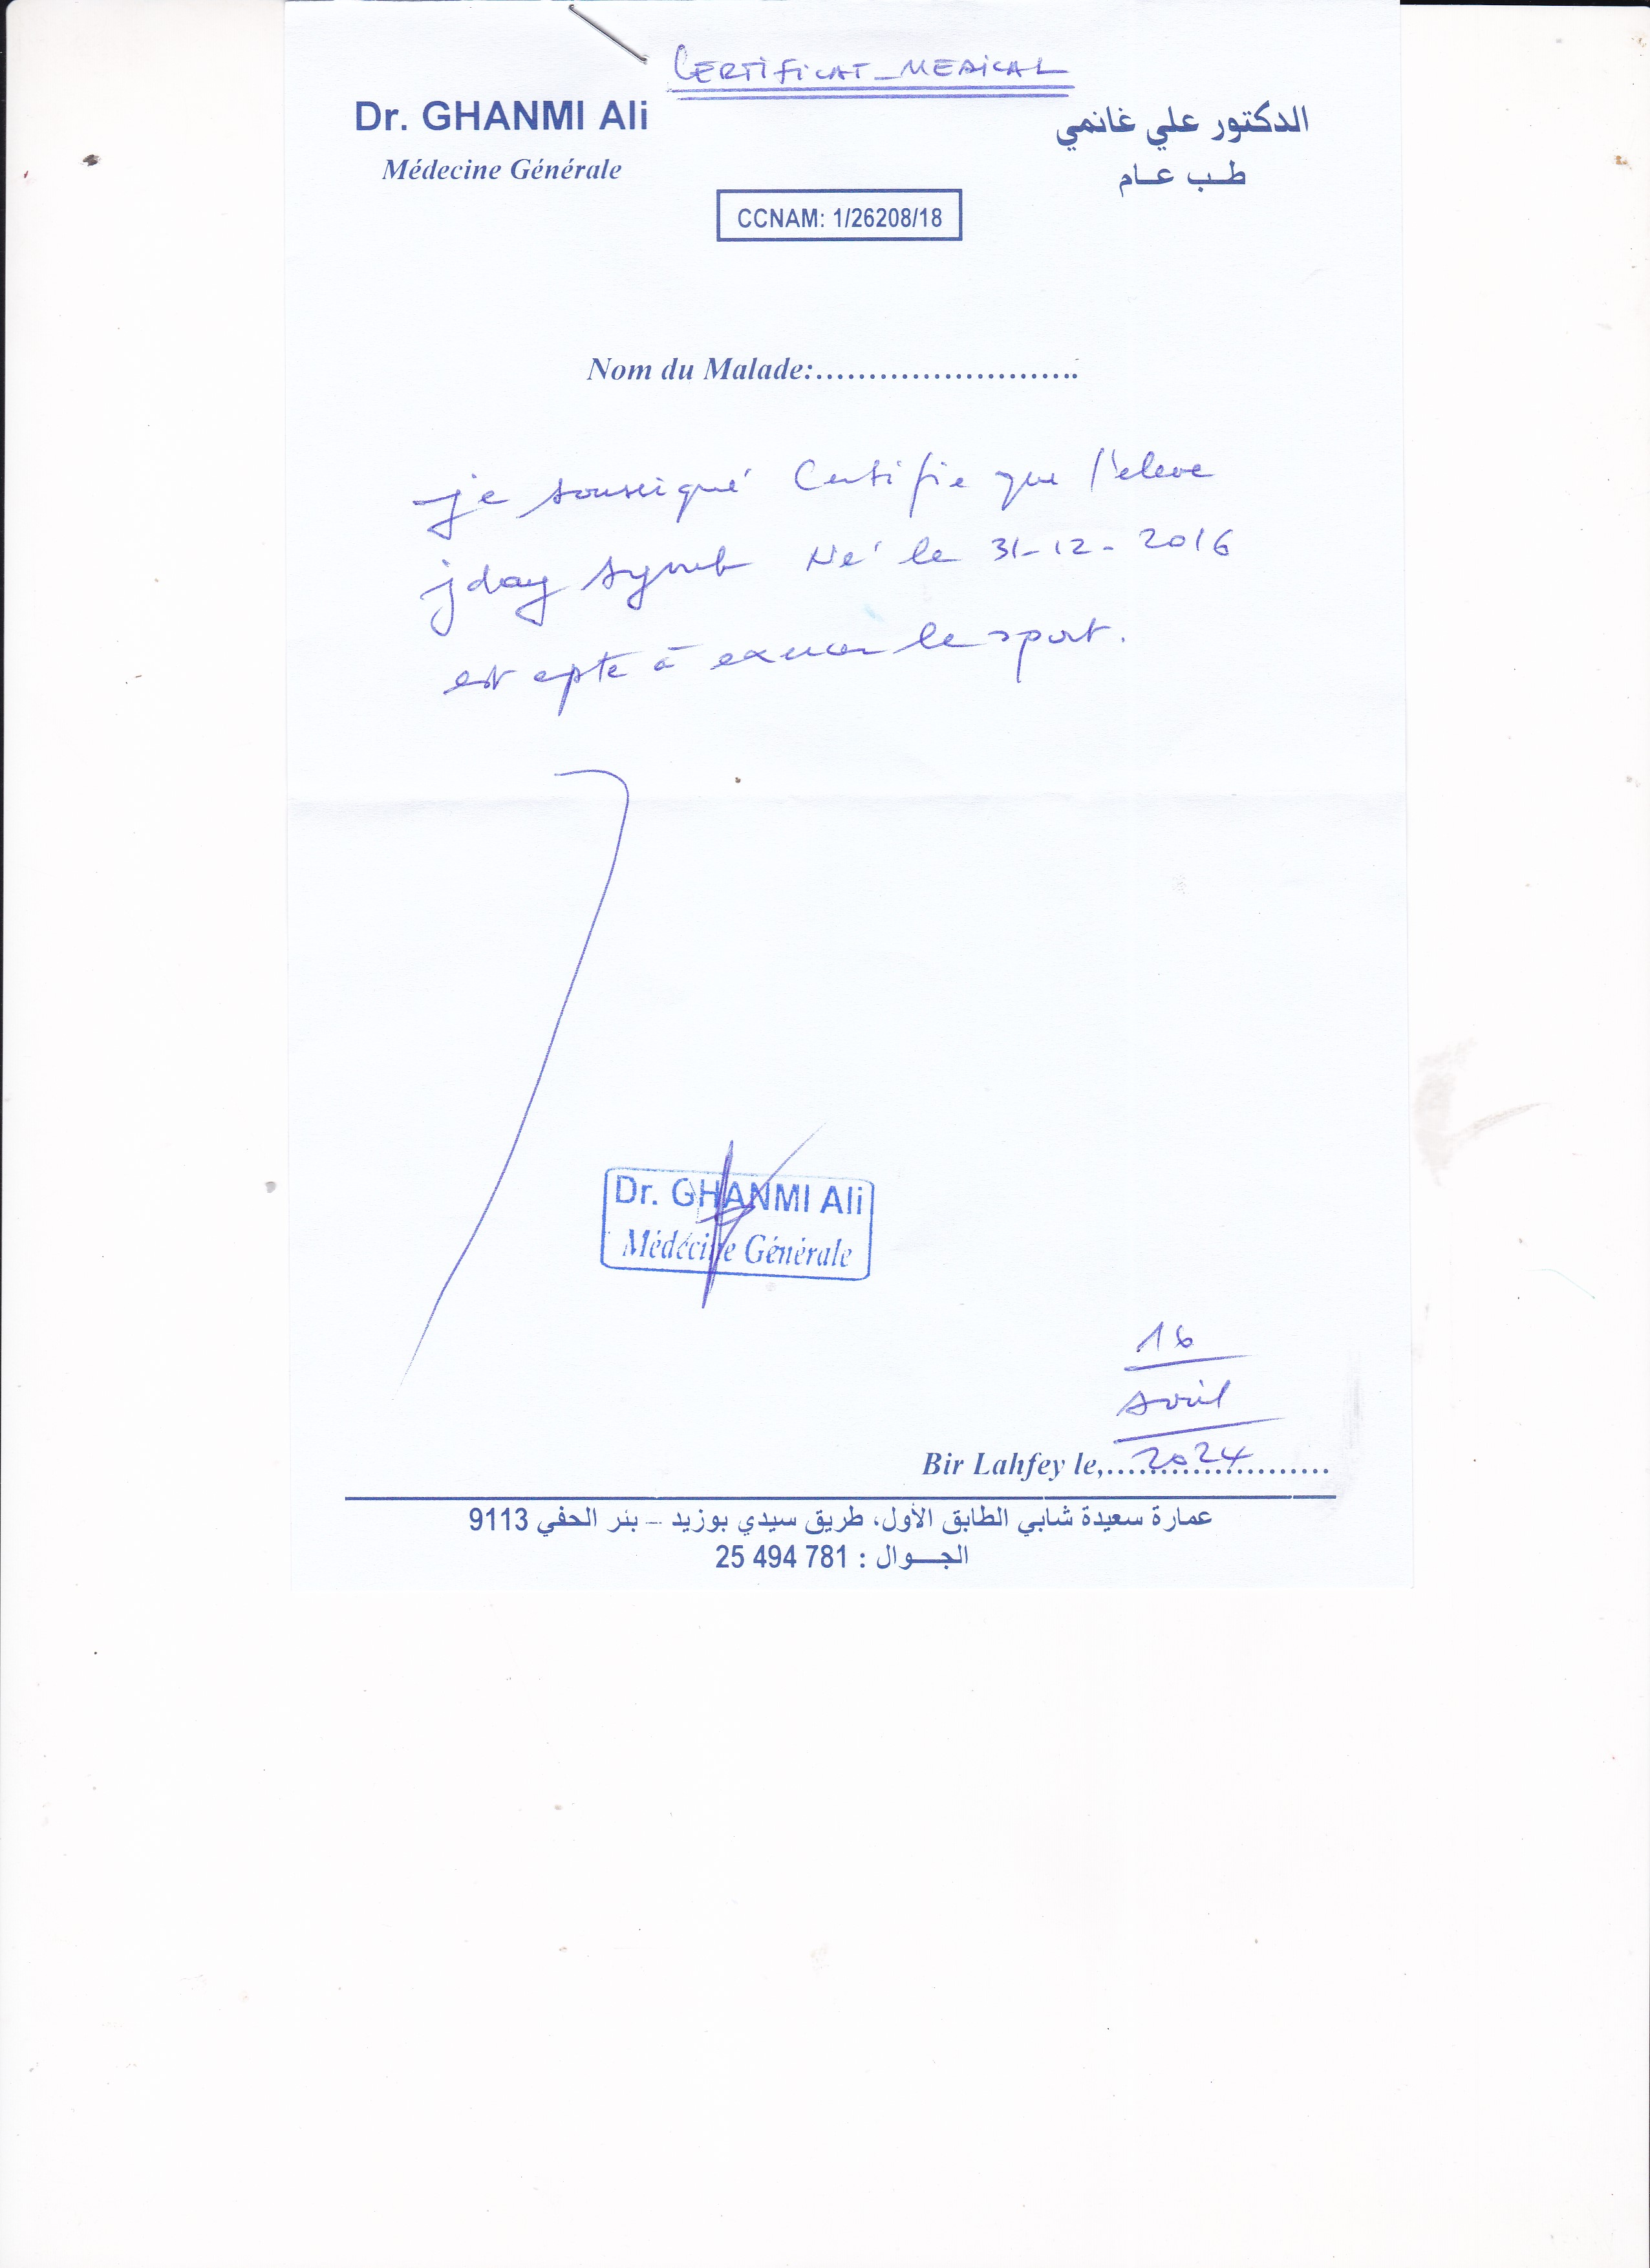 CERTIFICAT_MEDICAL
Dr. GHANMI Ali
الدكتور علي غانمي
Médecine Générale
طب عام
CCNAM: 1/26208/18
Nom du Malade:..........................
je soussigné Certifie que l'eleve
jday Né le 31-12-2016
est apte à exercer le sport.
Dr. GHANMI Ali
Médécine Générale
16
Avril
Bir Lahfey le, 2024
عمارة سعيدة شابي الطابق الأول، طريق سيدي بوزيد – بئر الحفي 9113
الجوال : 25 494 781